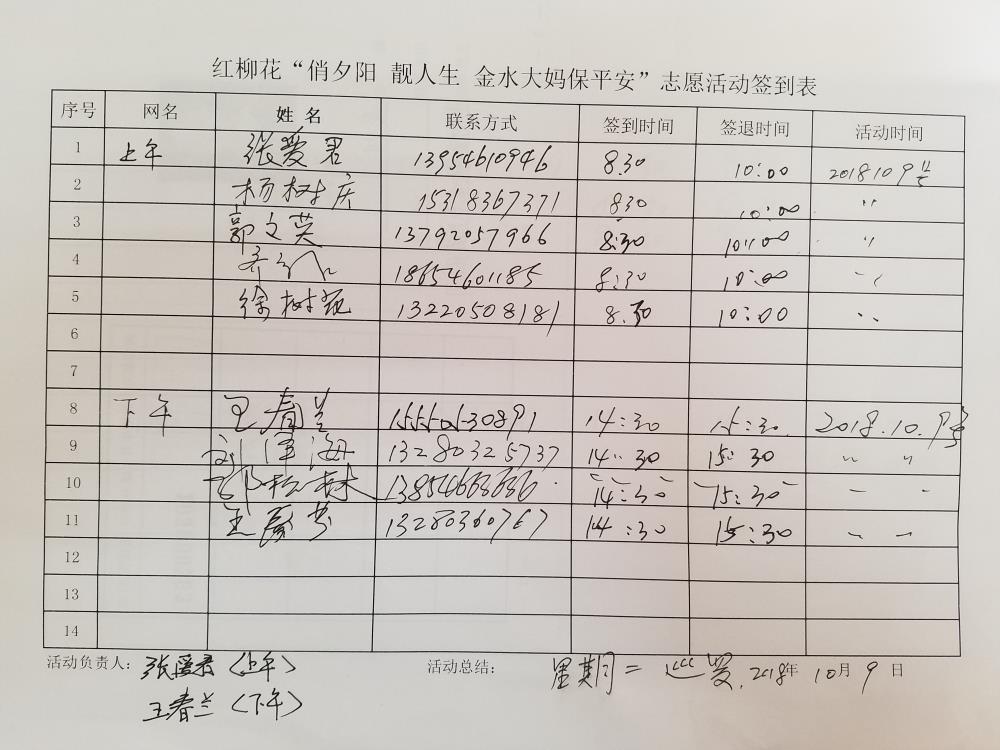 红柳花“俏夕阳 靓人生 金水大妈保平安”志愿活动签到表
序号 网名 姓名 联系方式 签到时间 签退时间 活动时间
1 上午 张爱君 13954610946 8:30 10:00 2018 10 9
2 杨树庆 15318367371 830 10:00 〃
3 郭文英 13792057966 8:30 10:00 〃
4 18654601185 8:30 10:00 〃
5 徐树 13220508181 8:30 10:00 〃
6
7
8 下午 王春兰 14:30 15:30 2018.10.9号
9 海 13280325737 14:30 15:30 〃 〃
10 14:30 15:30 〃 〃
11 王 14:30 15:30 〃 〃
12
13
14
活动负责人: 张爱君(上午) 活动总结: 星期二 巡逻. 2018年 10月 9日
王春兰(下午)